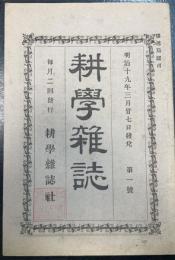 明治十九年三月廿七日發兌　第一號
耕學雜誌
每月二回發行　耕學雜誌社